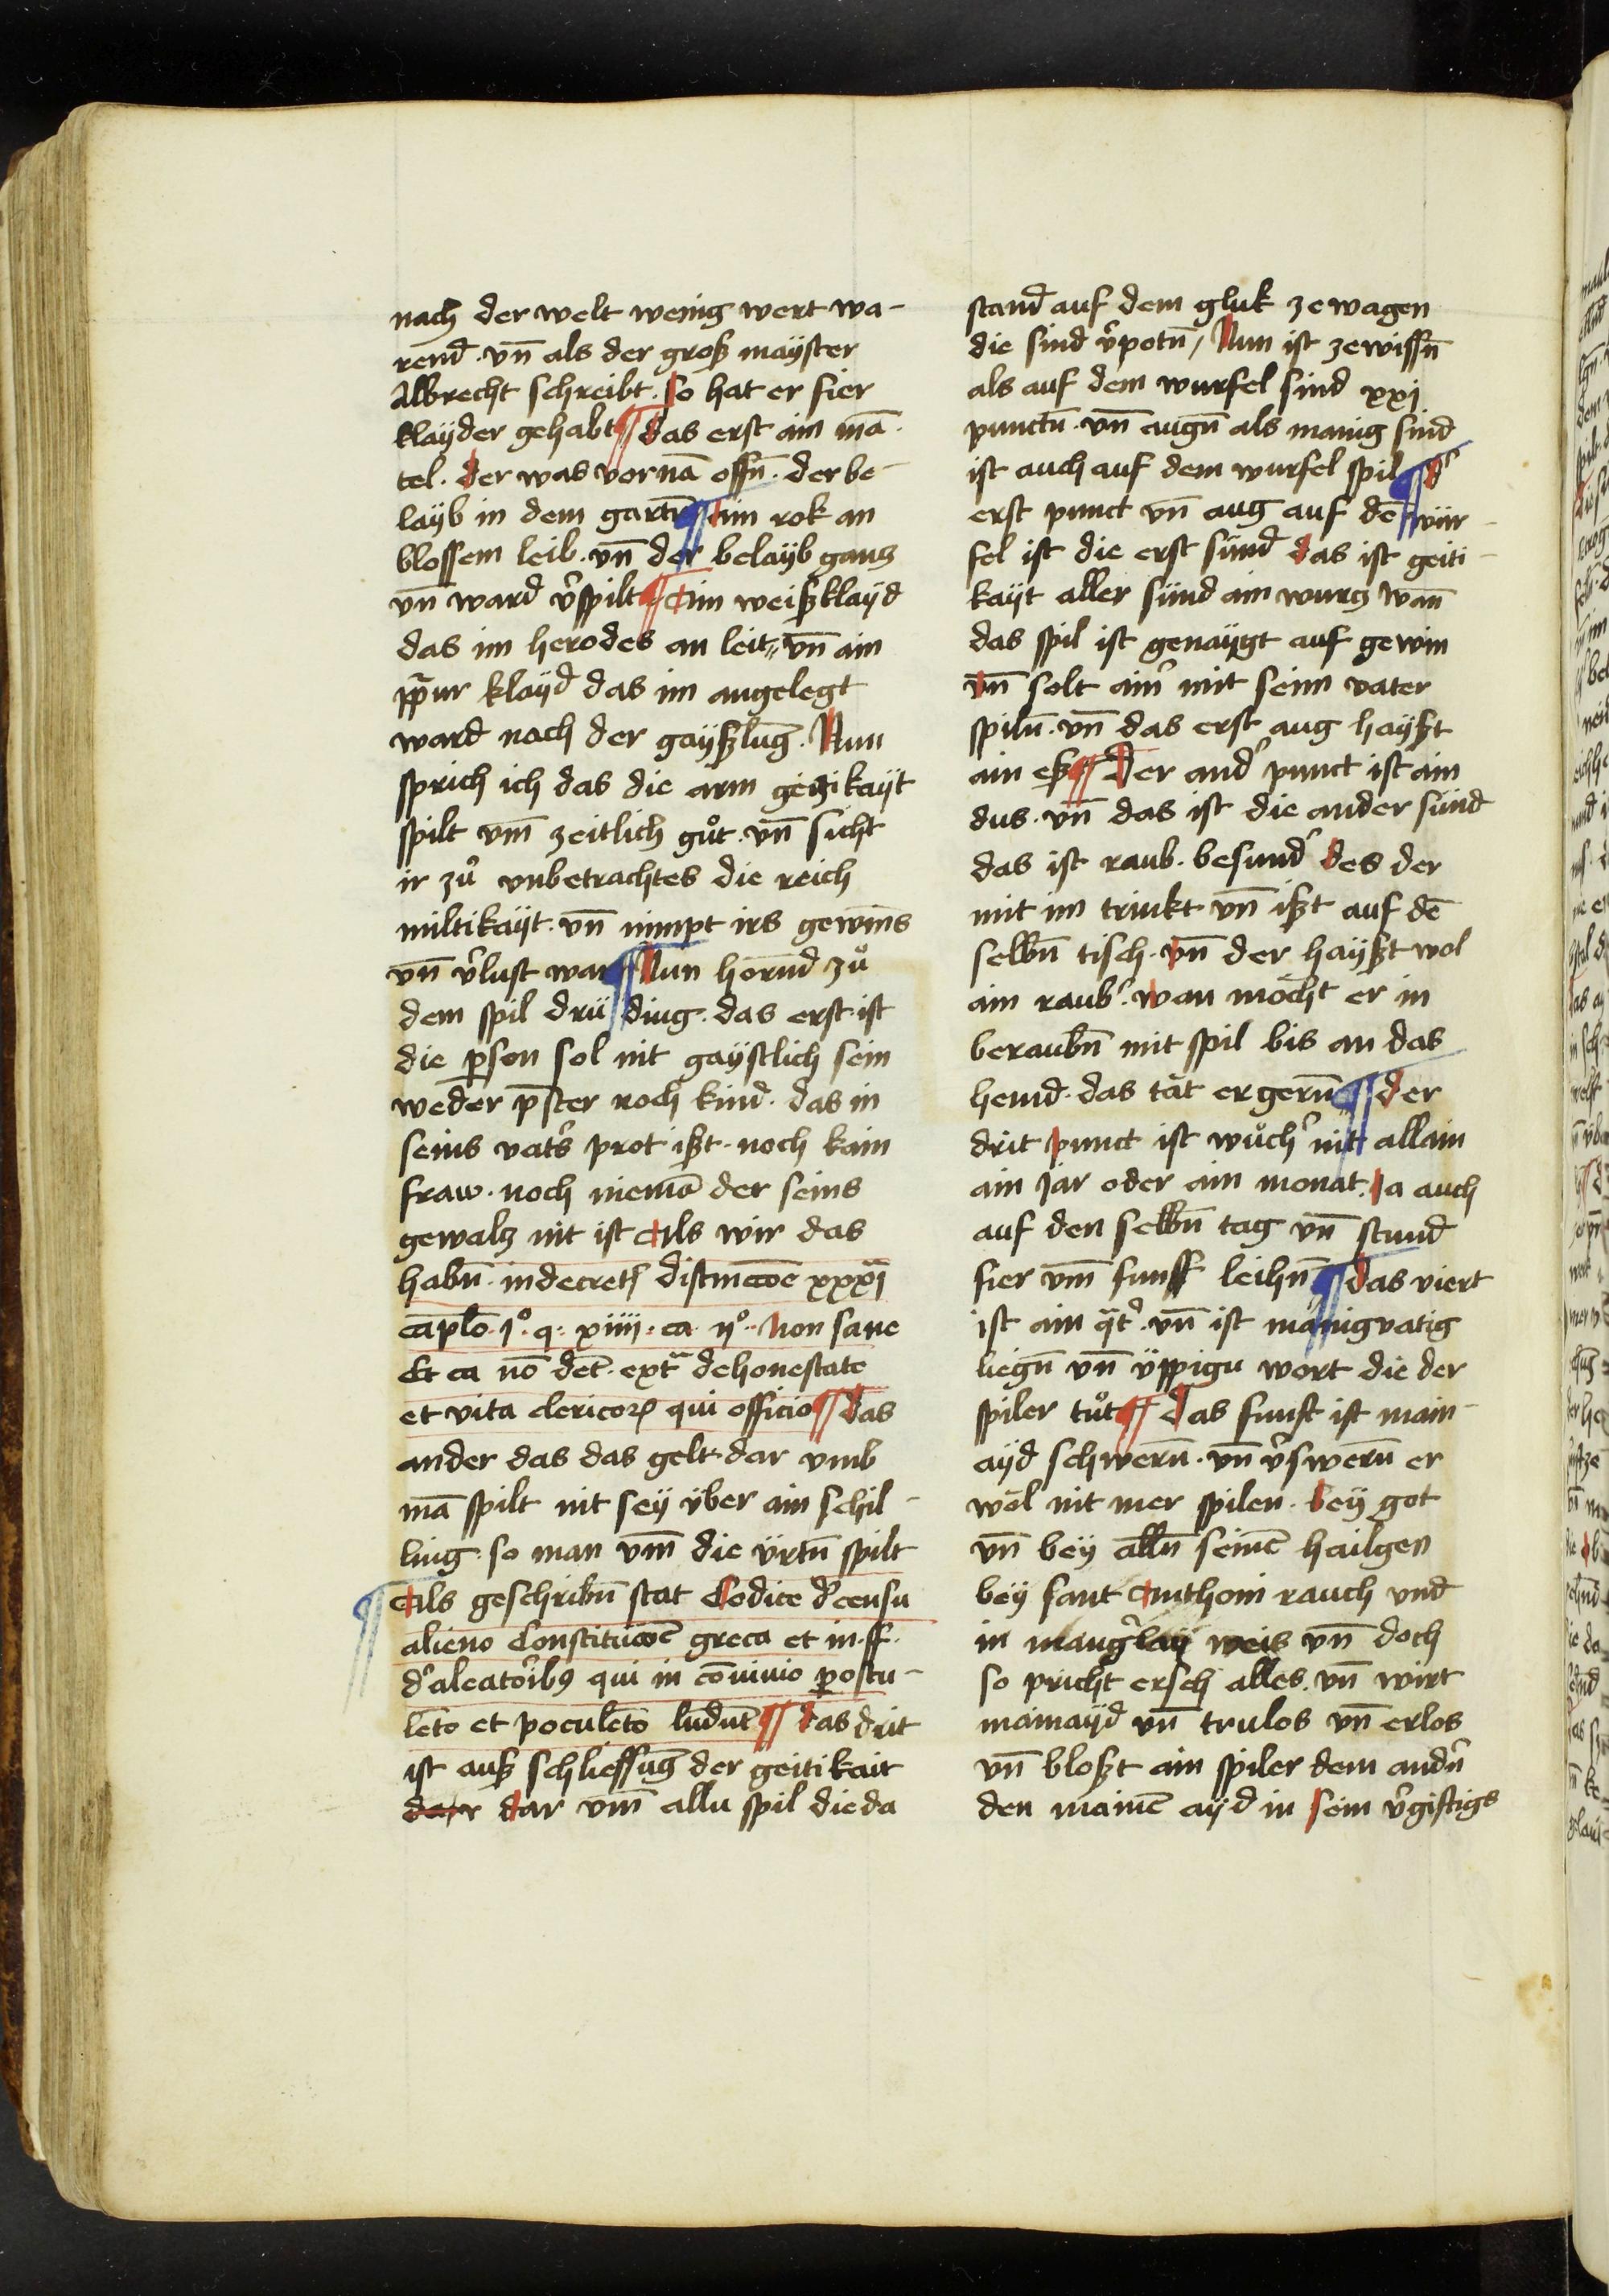 nach der welt wenig wert wa-
rend̄ · vn̄ als der groß mayster
Albrecht schreibt · so hat er fier
klayder gehabt ¶ das erst ain mā-
tel · der was vornā offn̄ · der be-
layb in dem gartn̄ ¶ Ain rok an
blossem leib · vn̄ der belayb gancz
vn̄ ward v̓spilt ¶ Ain weiß klayd
das im herodes an leit · vn̄ ain
pp̄ur klayd̄ das im angelegt
ward nach der gayßlūg · Nun
sprich ich das die arm geitzikayt
spilt vm̄ zeitlich gůt · vn̄ sicht
ir zů vnbetrachtes die reich
miltikayt · vn̄ nimpt irs gewīns
vn̄ v̓lust war ¶ Nun hörnd zů
dem spil drü ding · das erst ist
die p̱son sol nit gaystlich sein
weder p̄ster noch kind · das in
seins vat̓s prot ißt · noch kain
fraw · noch niemā der seins
gewaltz nit ist Als wir das
habn̄ · in decret̄ distinccōe xxxvj
cap̄lo · jº · q: xiiij: ca · ijº · Non sane
Et ca nō det̄ · ext̄ª de honestate
et vita clericoꝝ qui officio ¶ das
ander das das gelt dar vmb
mā spilt nit sey v̈ber ain schil-
ling · so man vm̄ die v̈rtn̄ spilt
¶ Als geschribn̄ stat Codice d̓ censu
alieno Constitucōe greca et in · ff ·
d̓ aleatorib⁹ qui in cōuiuio postu-
lēto et poculēto ludūt ¶ das drit
ist auß schliessūg der geitikait
dar vm̄ allu spil die da
stand̄ auf dem gluk ze wagen
die sind v̓potn̄ / Nun ist ze wissn̄
als auf dem wurfel sind xxj
punctn̄ · vn̄ augn̄ als manig sünd
ist auch auf dem wurfel spil ¶ d̓
erst punct vn̄ aug auf dē wür-
fel ist die erst sünd̄ das ist geiti-
kayt aller sünd ain wurcz wan̄
das spil ist genaygt auf gewin
vn̄ solt ain̓ mit seim vater
spiln̄ · vn̄ das erst aug hayßt
ain eß ¶ Der and̓ punct ist ain
dus · vn̄ das ist die ander sünd
das ist raub · besund̓ des der
mit im trinkt vn̄ ißt auf dē
selbn̄ tisch · vn̄ der hayßt wol
ain raub̓ · wan möcht er in
beraubn̄ mit spil bis an das
hemd · das tät er gern̄ ¶ der
drit punct ist wůch̓ nit allain
ain jar oder ain monat · Ja auch
auf den selbn̄ tag vn̄ stund̄
fier vm̄ funff leihn̄ ¶ das viert
ist ain qat̓ · vn̄ ist mänigvatig
liegn̄ vn̄ üppigu wort die der
spiler tůt ¶ Das funft ist main-
ayd schwern̄ · vn̄ v̓swern̄ er
wöl nit mer spilen · bey got
vn̄ bey alln̄ seinē hailgen
bey sant Anthoni rauch vnd
in mang̓lay weis vn̄ doch
so pricht ersch alles · vn̄ wirt
mainayd vn̄ trulos vn̄ erlos
vn̄ bloßt ain spiler dem andn̓
den mainē ayd in sein v̓giftigs